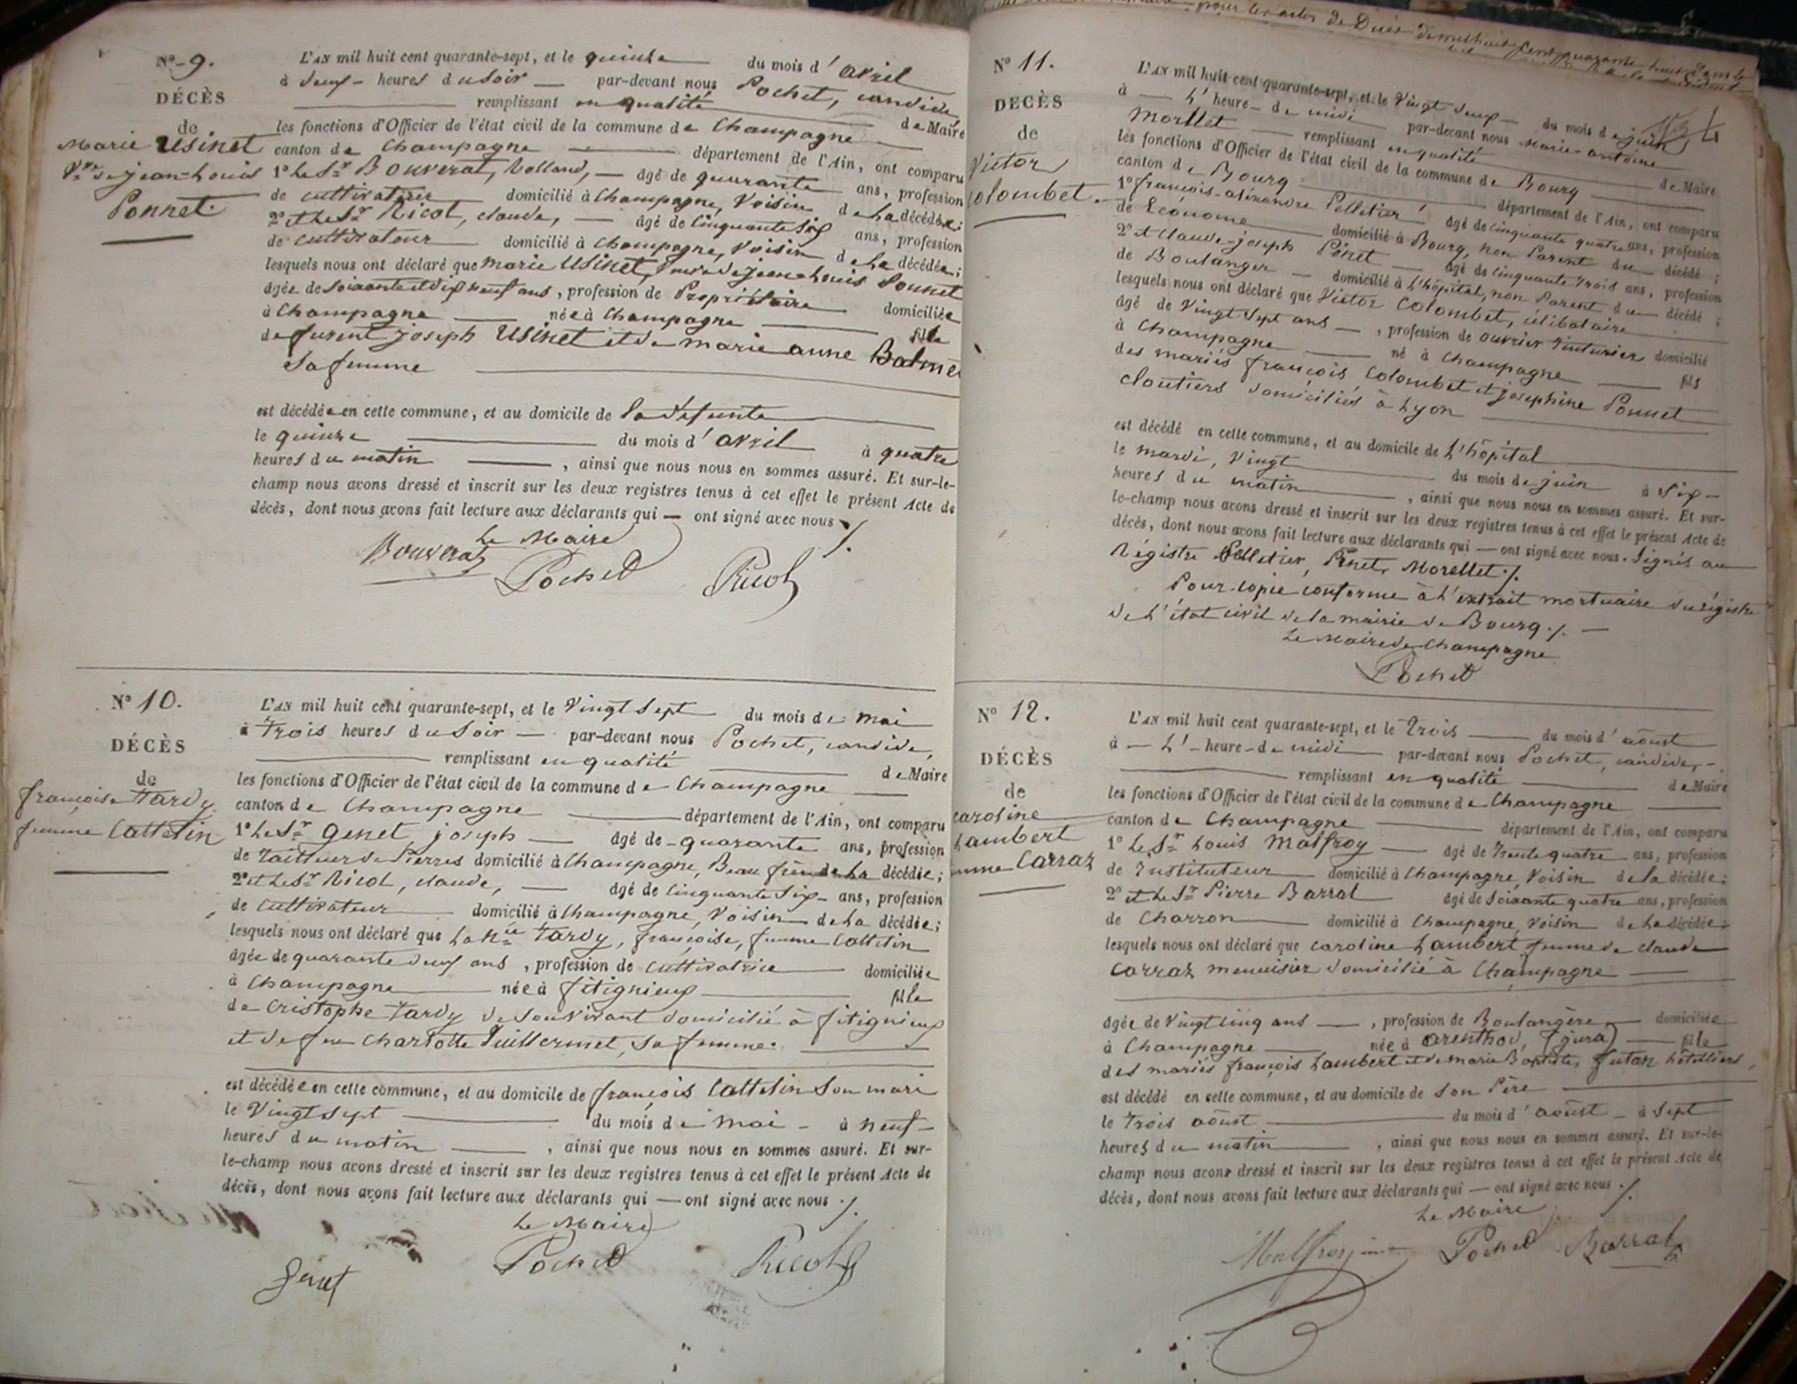 N° 9.
DÉCÈS
de
Marie Usinet
Vve de jean-Louis
Ponnet.
L'AN mil huit cent quarante-sept, et le quinze du mois d'avril
à neuf heures du soir par-devant nous Pochet, candide,
remplissant en qualité de Maire
les fonctions d'Officier de l'état civil de la commune de Champagne
canton de Champagne département de l'Ain, ont comparu
1° Le Sr Bouverat, Volland, âgé de quarante ans, profession
de cultivateur domicilié à Champagne, Voisin de La décédée;
2° et Le Sr Ricol, claude, âgé de cinquante six ans, profession
de cultivateur domicilié à Champagne, Voisin de La décédée;
lesquels nous ont déclaré que marie Usinet, veuve de jean-Louis Ponnet
âgée de soixante et dix neuf ans, profession de Propriétaire domiciliée
à Champagne née à Champagne fille
de furent joseph Usinet et de marie anne Balme
Sa femme
est décédée en cette commune, et au domicile de la défunte
le quinze du mois d'avril à quatre
heures du matin, ainsi que nous nous en sommes assuré. Et sur-le-
champ nous avons dressé et inscrit sur les deux registres tenus à cet effet le présent Acte de
décès, dont nous avons fait lecture aux déclarants qui — ont signé avec nous ./.
Le Maire
Bouverat Pochet Ricol
N° 10.
DÉCÈS
de
françoise Tardy
femme Cattelin
L'AN mil huit cent quarante-sept, et le Vingt sept du mois de mai
à trois heures du Soir par-devant nous Pochet, candide,
remplissant en qualité de Maire
les fonctions d'Officier de l'état civil de la commune de Champagne
canton de Champagne département de l'Ain, ont comparu
1° Le Sr Genet joseph âgé de quarante ans, profession
de Tailleur de Pierres domicilié à Champagne, Beau frère de La décédée;
2° et Le Sr Ricol, claude, âgé de cinquante Six ans, profession
de Cultivateur domicilié à Champagne, Voisin de La décédée;
lesquels nous ont déclaré que La née Tardy, françoise, femme Cattelin
âgée de quarante neuf ans, profession de cultivatrice domiciliée
à Champagne née à fitignieux fille
de Cristophe Tardy de Son Vivant domicilié à fitignieux
et de feue Charlotte Guillermet, Sa femme.
est décédée en cette commune, et au domicile de françois Cattelin Son mari
le Vingt sept du mois de mai à neuf
heures du matin, ainsi que nous nous en sommes assuré. Et sur-
le-champ nous avons dressé et inscrit sur les deux registres tenus à cet effet le présent Acte de
décès, dont nous avons fait lecture aux déclarants qui — ont signé avec nous ./.
Le Maire
Genet Pochet Ricol
pour les actes de Décès de mil huit cent quarante huit
N° 11.
DÉCÈS
de
Victor
Colombet.
L'AN mil huit cent quarante-sept, et le Vingt deux du mois de juin
à L'heure de midi par-devant nous Marie-antoine
Morellet remplissant en qualité de Maire
les fonctions d'Officier de l'état civil de la commune de Bourg
canton de Bourg département de l'Ain, ont comparu
1° françois-alexandre Pelletier âgé de cinquante quatre ans, profession
de Econome domicilié à Bourg, non Parent du décédé;
2° et claude-joseph Pinet âgé de cinquante trois ans, profession
de Boulanger domicilié à L'hôpital, non Parent du décédé;
lesquels nous ont déclaré que Victor Colombet, célibataire
âgé de Vingt sept ans, profession de ouvrier Teinturier domicilié
à Champagne né à Champagne fils
des mariés françois Colombet et joséphine Ponnet
cloutiers domiciliés à Lyon
est décédé en cette commune, et au domicile de L'hôpital
le mardi, Vingt du mois de juin à six
heures du matin, ainsi que nous nous en sommes assuré. Et sur-
le-champ nous avons dressé et inscrit sur les deux registres tenus à cet effet le présent Acte de
décès, dont nous avons fait lecture aux déclarants qui — ont signé avec nous. Signés au
Régistre Pelletier, Pinet, Morellet ./.
Pour copie conforme à l'extrait mortuaire du régistre
de L'état civil de la mairie de Bourg ./.
Le Maire de Champagne
Pochet
N° 12.
DÉCÈS
de
caroline
Lambert
femme Carraz
L'AN mil huit cent quarante-sept, et le Trois du mois d'août
à L'heure de midi par-devant nous Pochet, candide,
remplissant en qualité de Maire
les fonctions d'Officier de l'état civil de la commune de Champagne
canton de Champagne département de l'Ain, ont comparu
1° Le Sr Louis Malfroy âgé de Trente quatre ans, profession
de Instituteur domicilié à Champagne, Voisin de la décédée;
2° et Le Sr Pierre Barral âgé de Soixante quatre ans, profession
de Charron domicilié à Champagne, Voisin de La décédée;
lesquels nous ont déclaré que caroline Lambert femme de claude
Carraz menuisier domicilié à Champagne
âgée de Vingt cinq ans, profession de Boulangère domiciliée
à Champagne née à arenthod, (jura) fille
des mariés françois Lambert et de marie Baptiste, futan hôtelliers,
est décédé en cette commune, et au domicile de Son Père
le trois août du mois d'août à Sept
heures du matin, ainsi que nous nous en sommes assuré. Et sur-le-
champ nous avons dressé et inscrit sur les deux registres tenus à cet effet le présent Acte de
décès, dont nous avons fait lecture aux déclarants qui — ont signé avec nous ./.
Le Maire
Malfroy Pochet Barral